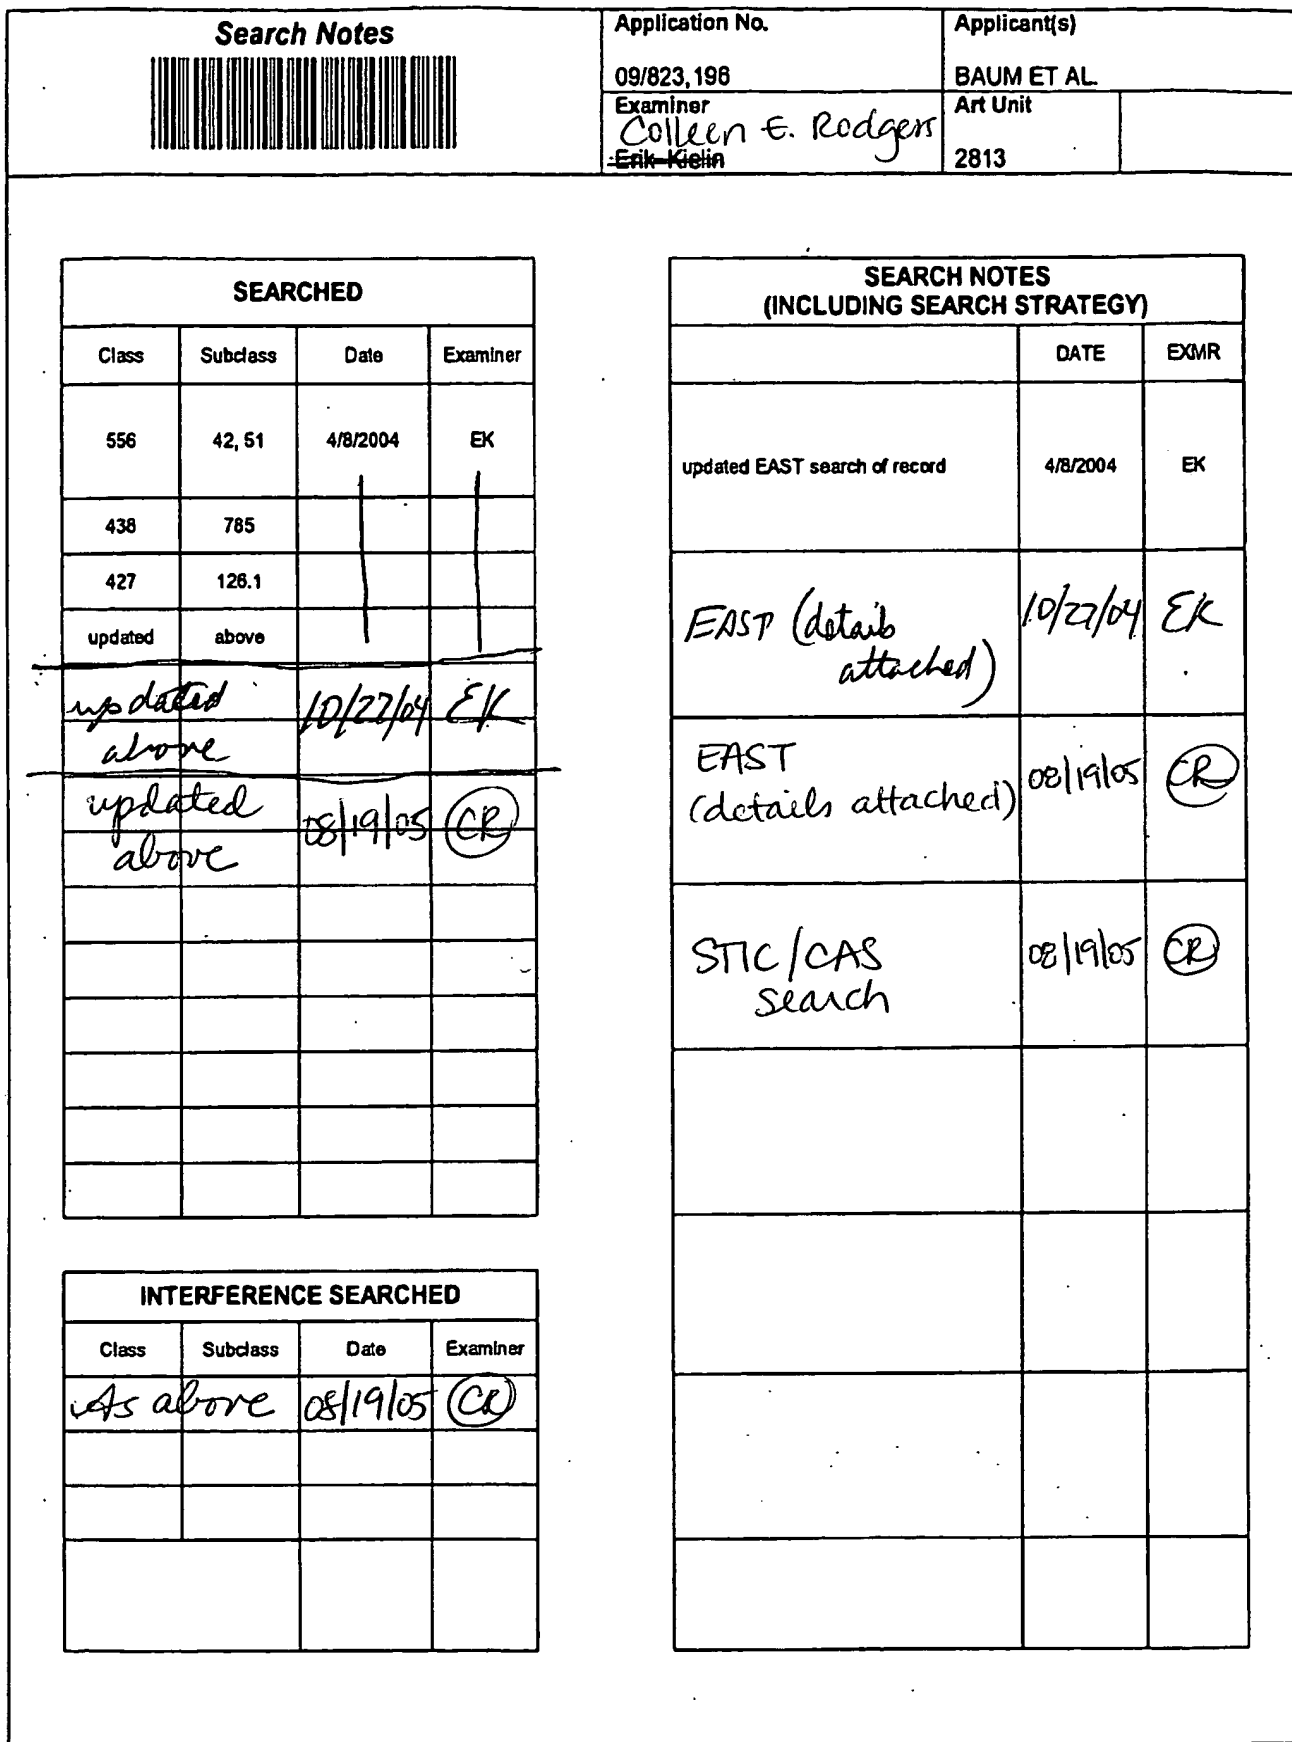 Search Notes
Application No.
09/823,196
Applicant(s)
BAUM ET AL.
Examiner
Colleen E. Rodgers
Erik Kielin
Art Unit
2813
SEARCHED
Class Subclass Date Examiner
556 42, 51 4/8/2004 EK
438 785
427 126.1
updated above
updated 10/27/04 EK
above
updated 08/19/05 CR
above
INTERFERENCE SEARCHED
Class Subclass Date Examiner
As above 08/19/05 CR
SEARCH NOTES
(INCLUDING SEARCH STRATEGY)
DATE EXMR
updated EAST search of record 4/8/2004 EK
EAST (details 10/27/04 EK
attached)
EAST 08/19/05 CR
(details attached)
STIC/CAS 08/19/05 CR
search